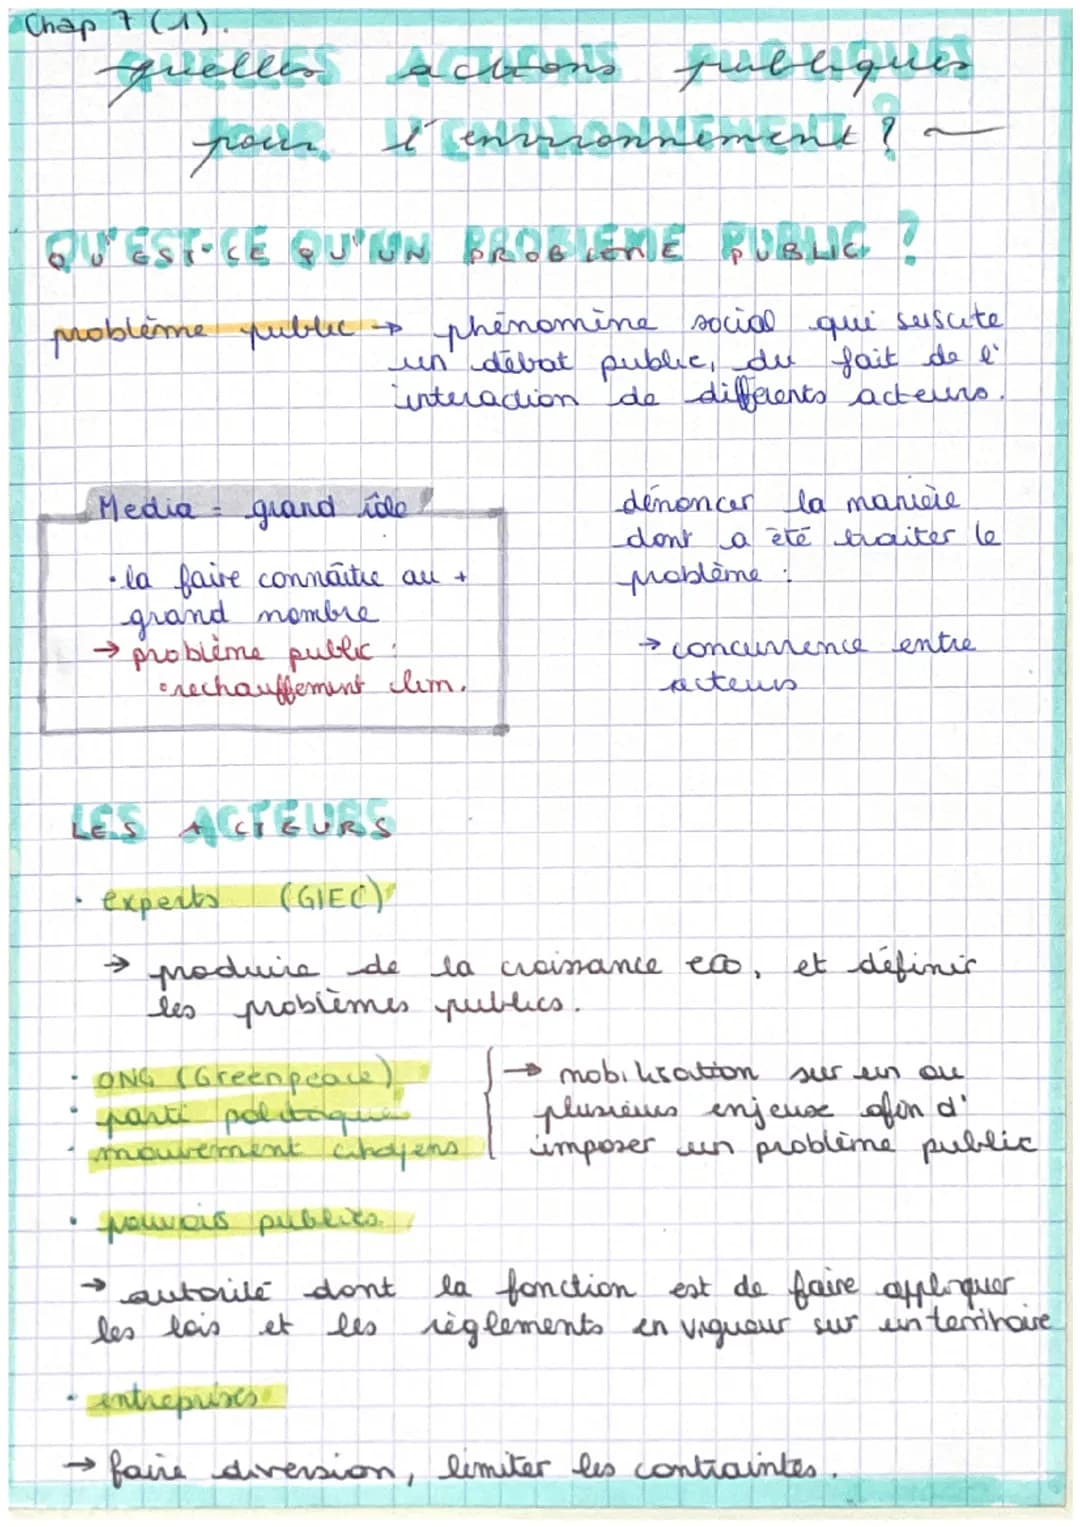 Chap 7 (1).
quelles actions publiques
pour l'environnement ?
QU'EST-CE QU'UN PROBLEME PUBLIC ?
problème public → phénomène social qui suscite
un débat public, du fait de l'
interaction de différents acteurs.
Media = grand rôle
• la faire connaître au +
grand nombre
→ problème public :
• rechauffement clim.
dénoncer la manière
dont a été traiter le
problème :
→ concurrence entre
acteurs
LES ACTEURS
• experts (GIEC)
→ produire de la croissance eco, et définir
les problèmes publics.
• ONG (Greenpeace)
• parti politique
• mouvement citoyens
→ mobilisation sur un ou
plusieurs enjeux afin d'
imposer un problème public
• pouvoirs publics
→ autorité dont la fonction est de faire appliquer
les lois et les règlements en vigueur sur un territoire
• entreprises
→ faire diversion, limiter les contraintes.